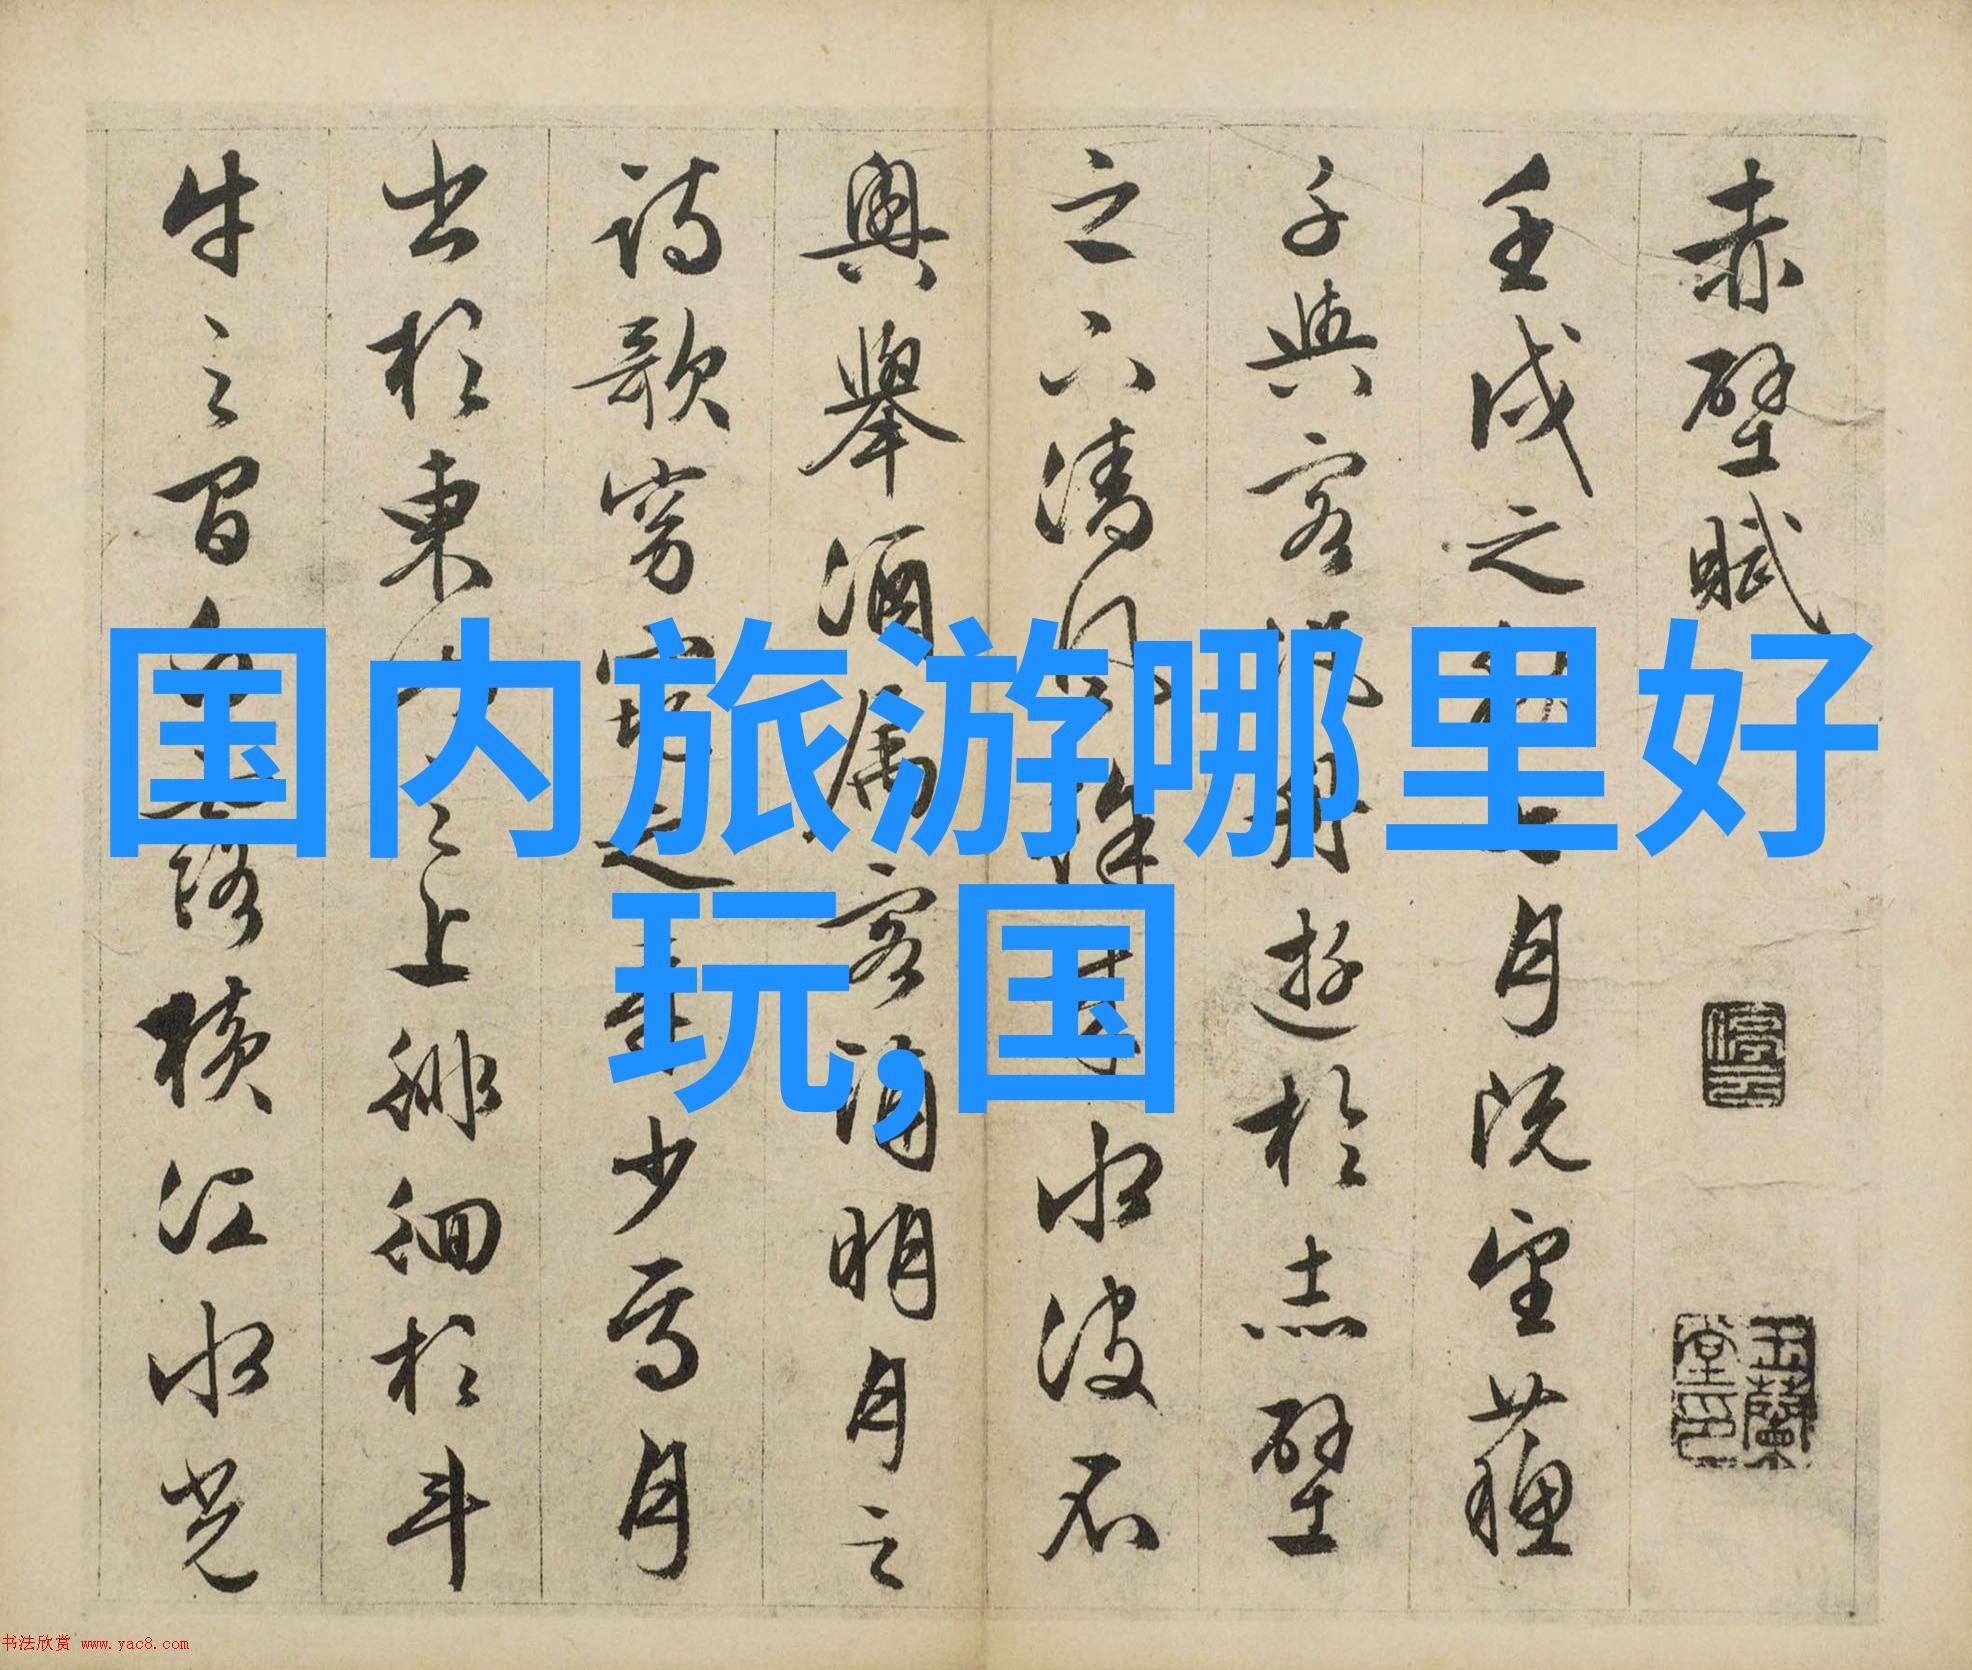 赤壁賦
壬戌之秋七月既望蘇
子與客泛舟遊於赤壁
之下清風徐来水波不
興舉酒屬客誦明月之
詩歌窈窕之章少焉月
出於東山之上徘徊於斗
牛之間白露橫江水光
国内旅游哪里好
玩,国
书法欣赏 www.yac8.com